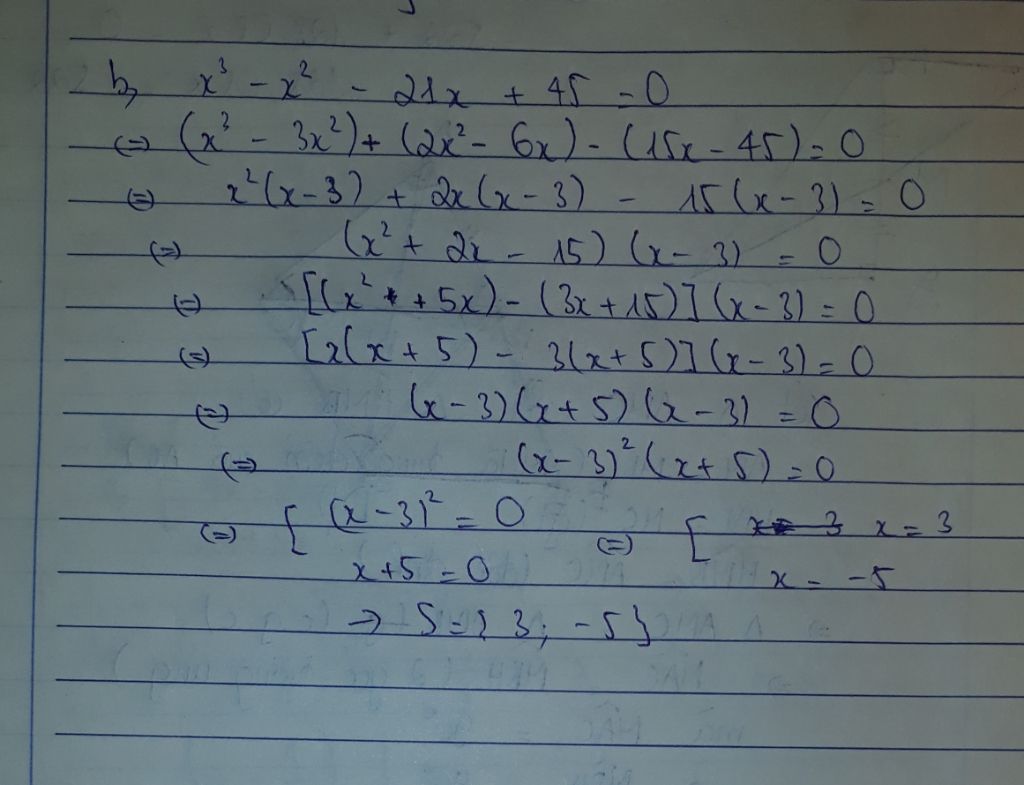 b, x³ - x² - 21x + 45 = 0
(=) (x³ - 3x²) + (2x² - 6x) - (15x - 45) = 0
(=) x²(x - 3) + 2x(x - 3) - 15(x - 3) = 0
(=) (x² + 2x - 15)(x - 3) = 0
(=) [(x² + 5x) - (3x + 15)](x - 3) = 0
(=) [x(x + 5) - 3(x + 5)](x - 3) = 0
(=) (x - 3)(x + 5)(x - 3) = 0
(=) (x - 3)²(x + 5) = 0
(=) [ (x - 3)² = 0 (=) [ x = 3
x + 5 = 0 x = -5
→ S = { 3; -5 }